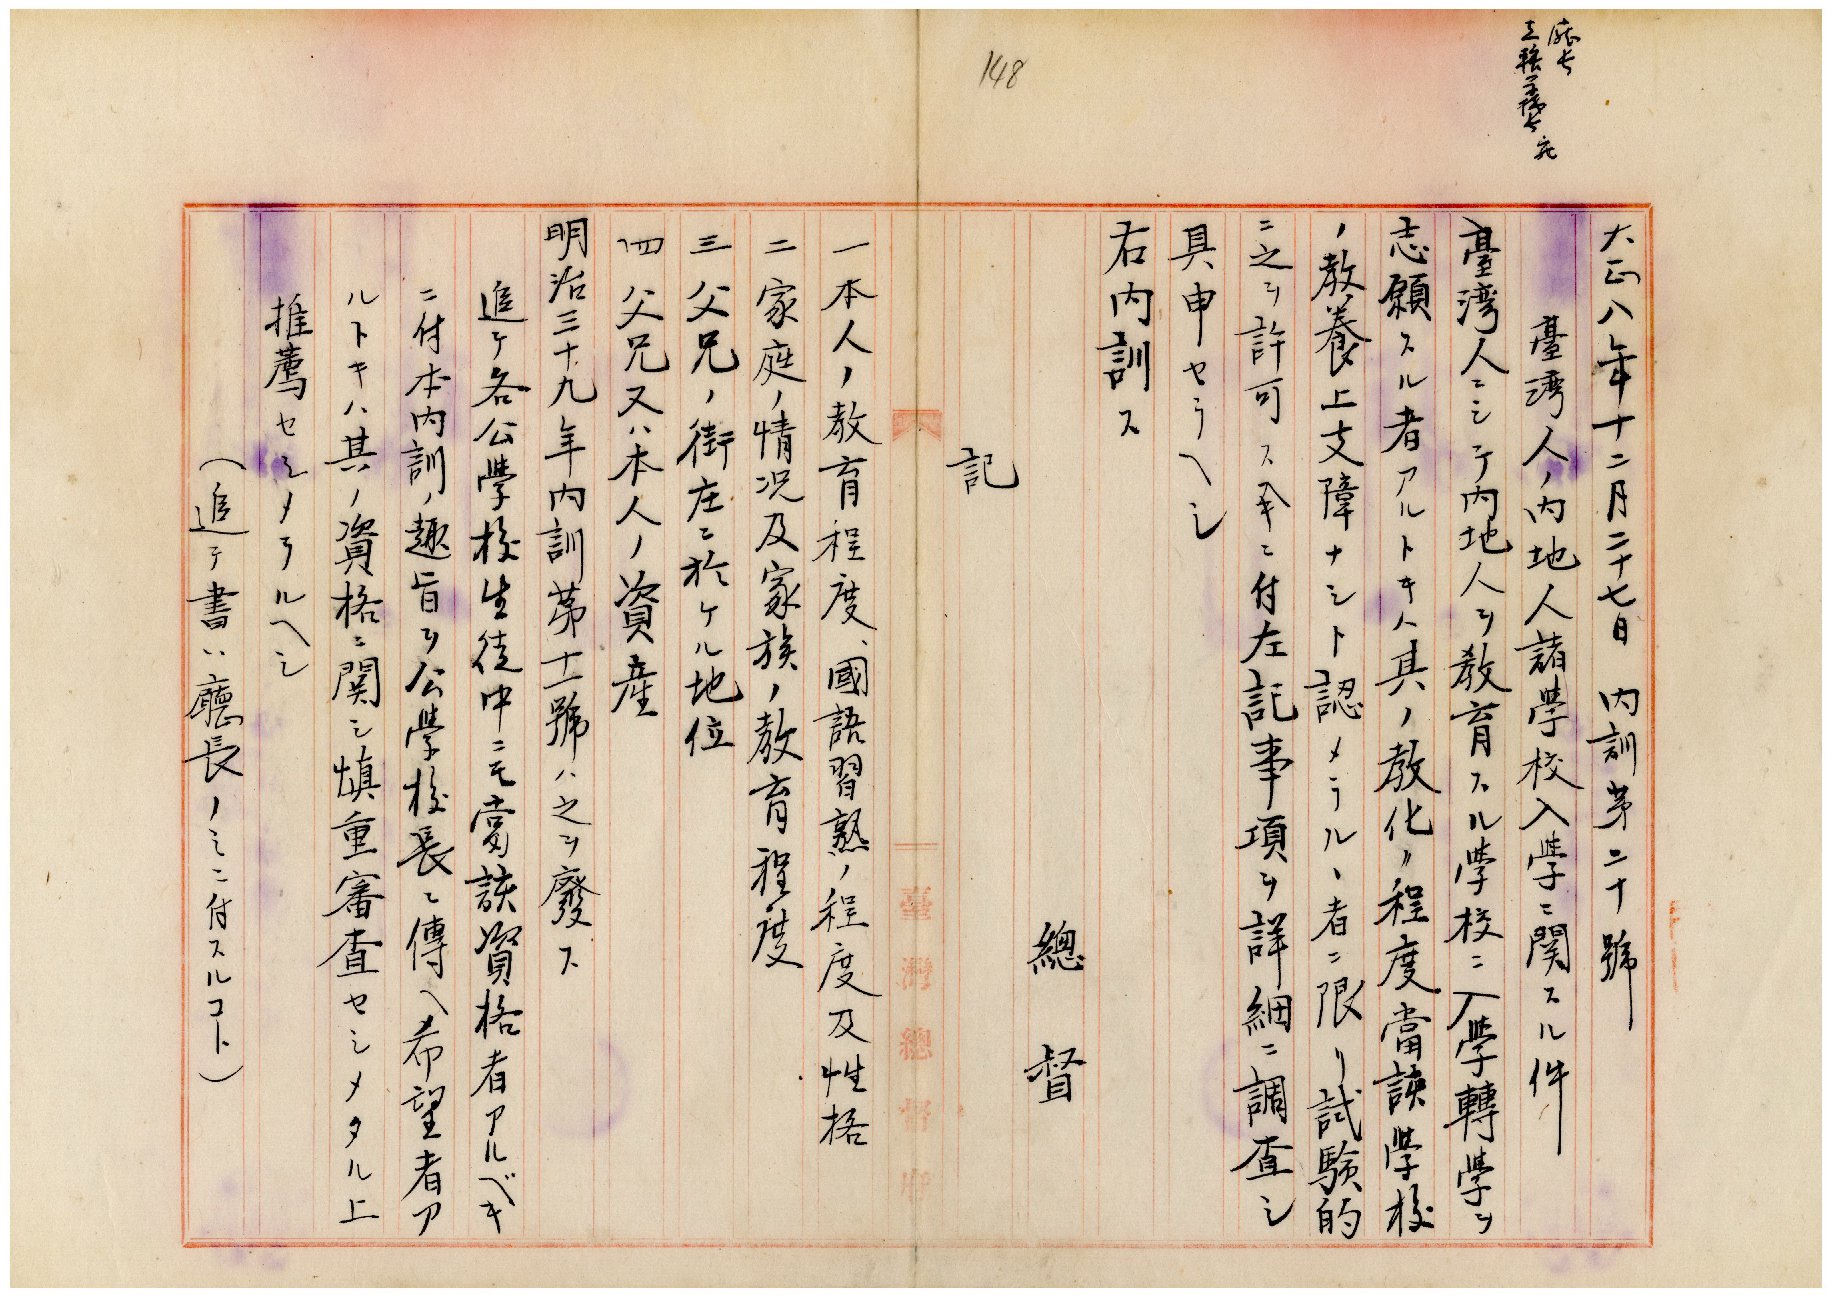 148
廳長
大正八年十二月二十七日 内訓第二十號
臺湾人ノ内地人諸學校入學ニ関スル件
臺湾人ニシテ内地人ヲ教育スル學校ニ入學轉學ヲ
志願スル者アルトキハ其ノ教化ノ程度當該學校
ノ教養上支障ナシト認メラルヽ者ニ限リ試験的
ニ之ヲ許可ス条ニ付左記事項ヲ詳細ニ調査シ
具申セラヘシ
右内訓ス
總督
記
一本人ノ教育程度、國語習熟ノ程度及性格
二家庭ノ情況及家族ノ教育程度
三父兄ノ街庄ニ於ケル地位
四父兄又ハ本人ノ資産
明治三十九年内訓第十一號ハ之ヲ廢ス
追テ各公學校生徒中ニモ當該資格者アルベキ
ニ付本内訓ノ趣旨ヲ公學校長ニ傳ヘ希望者ア
ルトキハ其ノ資格ニ関シ慎重審査セシメタル上
推薦セシメラルヘシ
(追テ書ハ廳長ノミニ付スルコト)
臺灣總督府